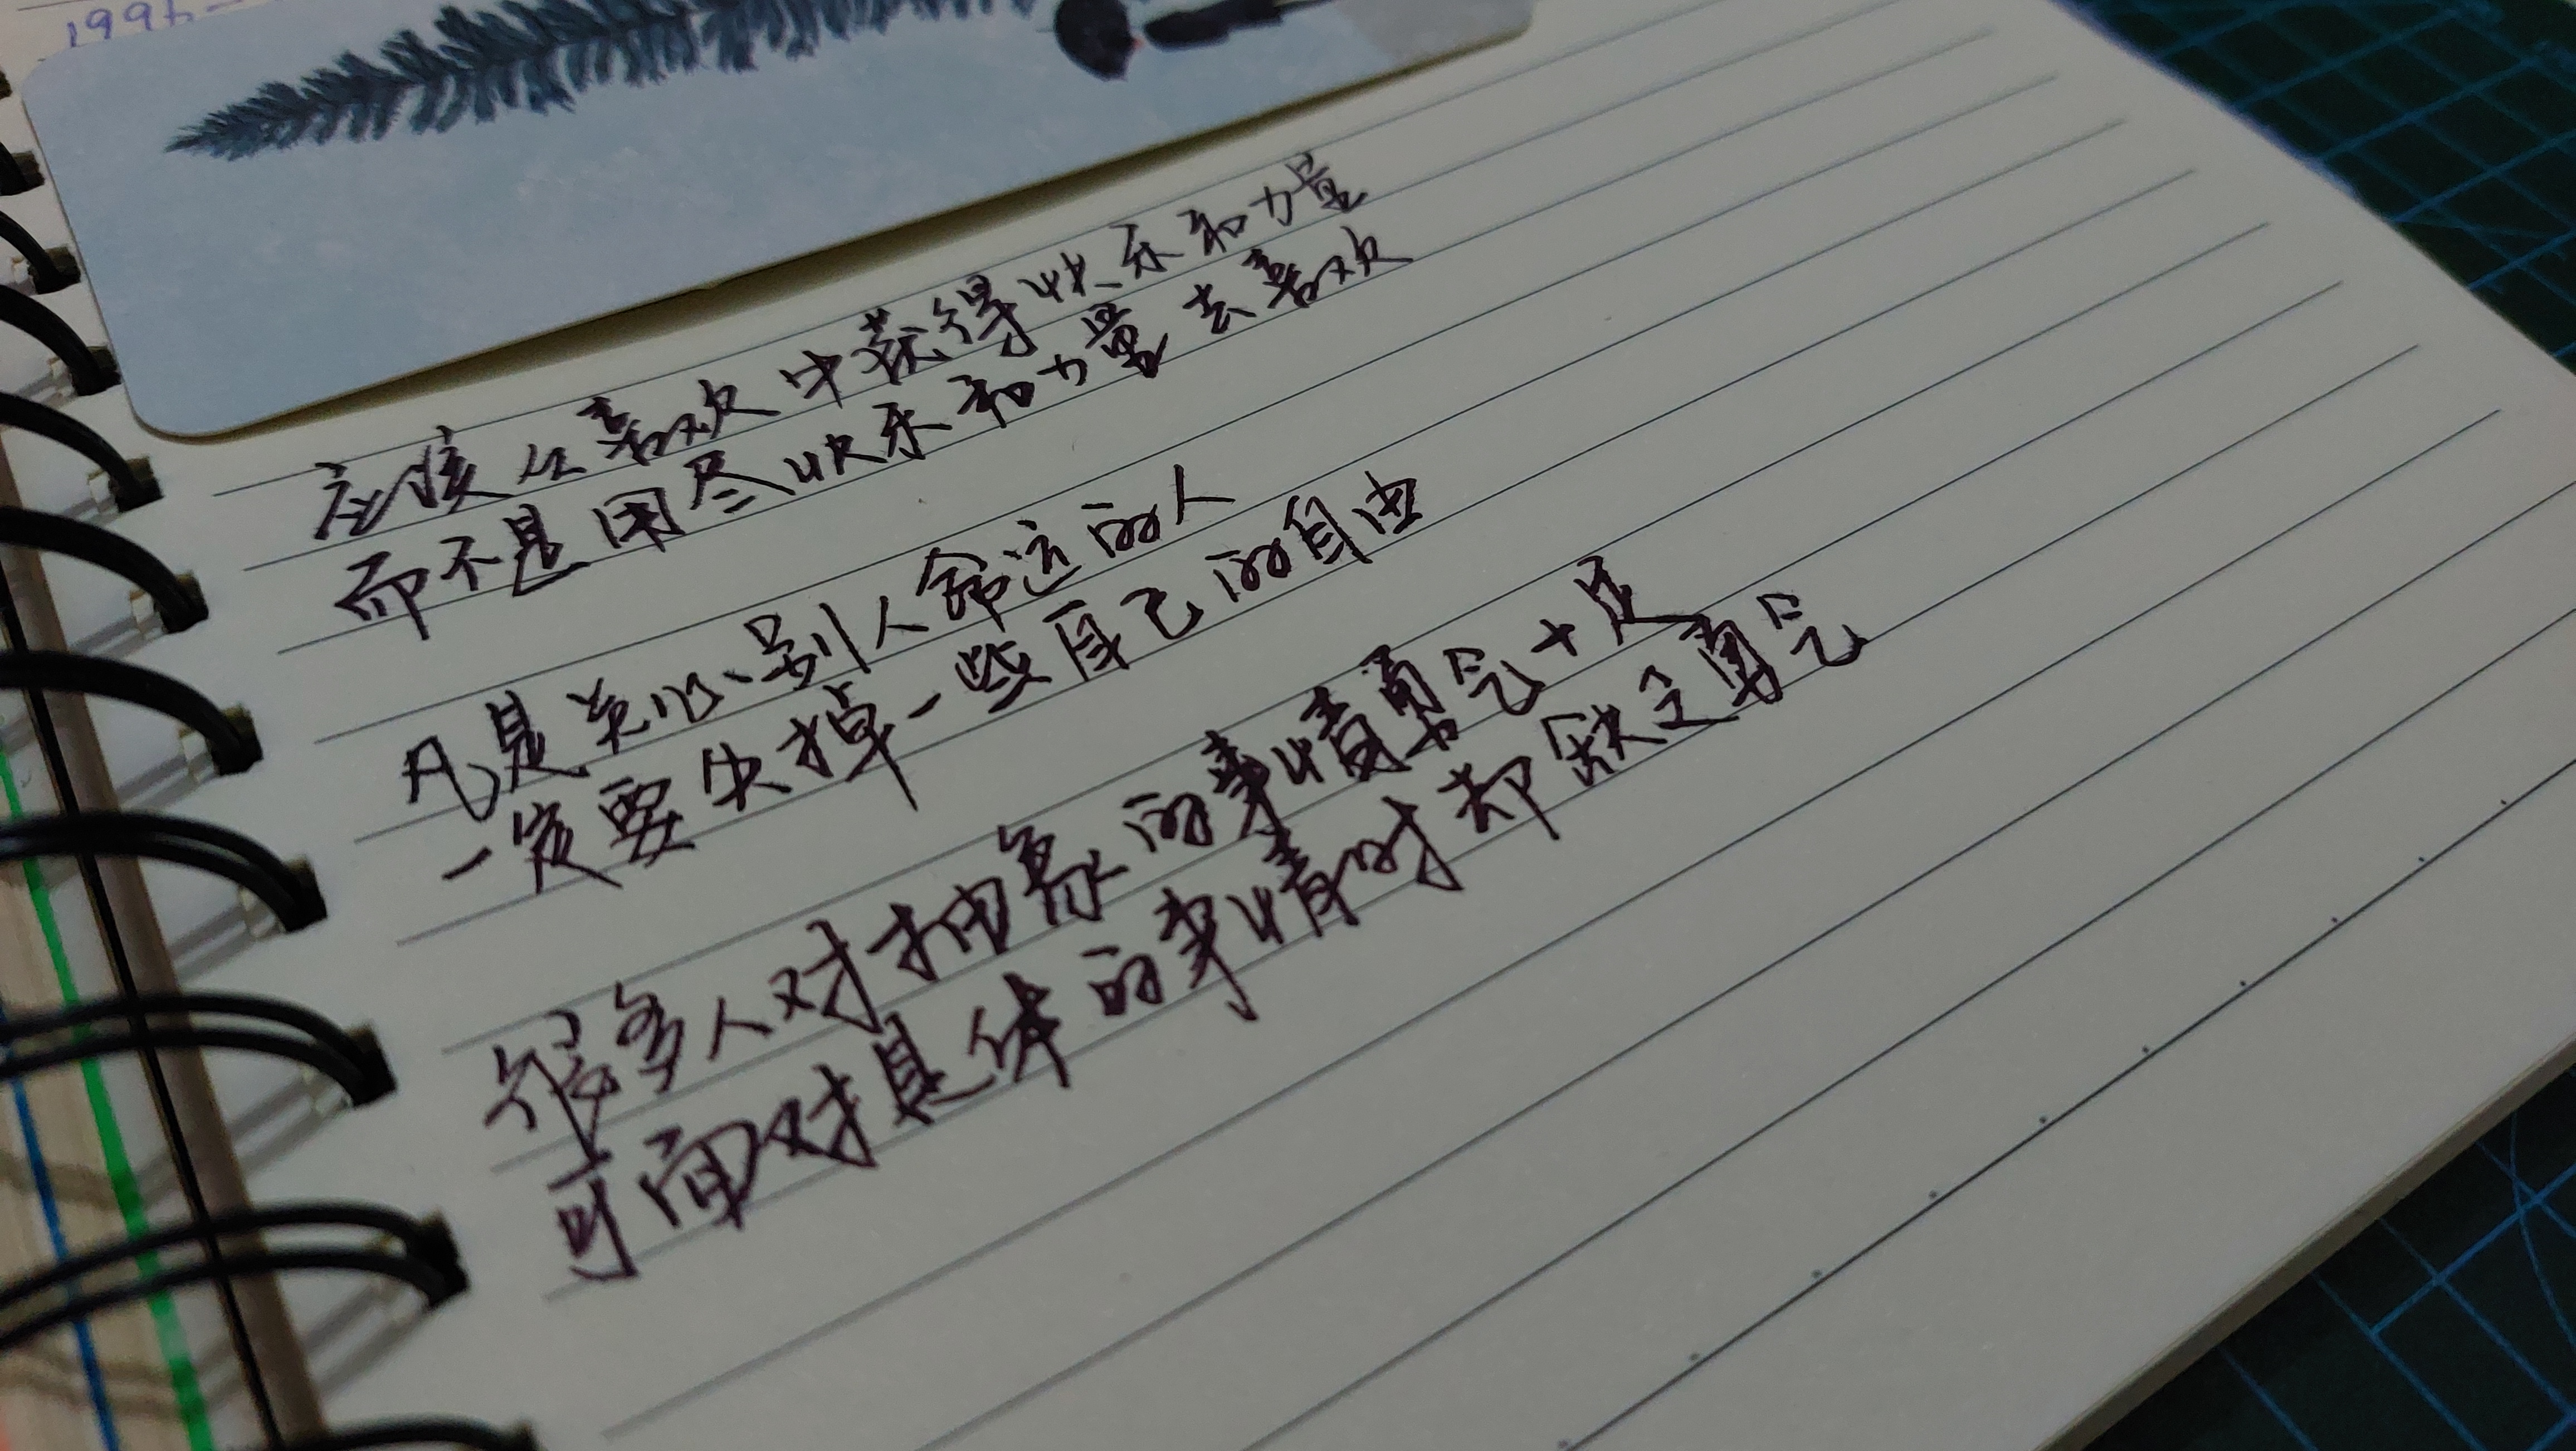 199
应该从喜欢中获得快乐和力量
而不是用尽快乐和力量去喜欢
凡是关心别人命运的人
一定要失掉一些自己的自由
很多人对抽象的事情勇气十足
可面对具体的事情时却缺乏勇气